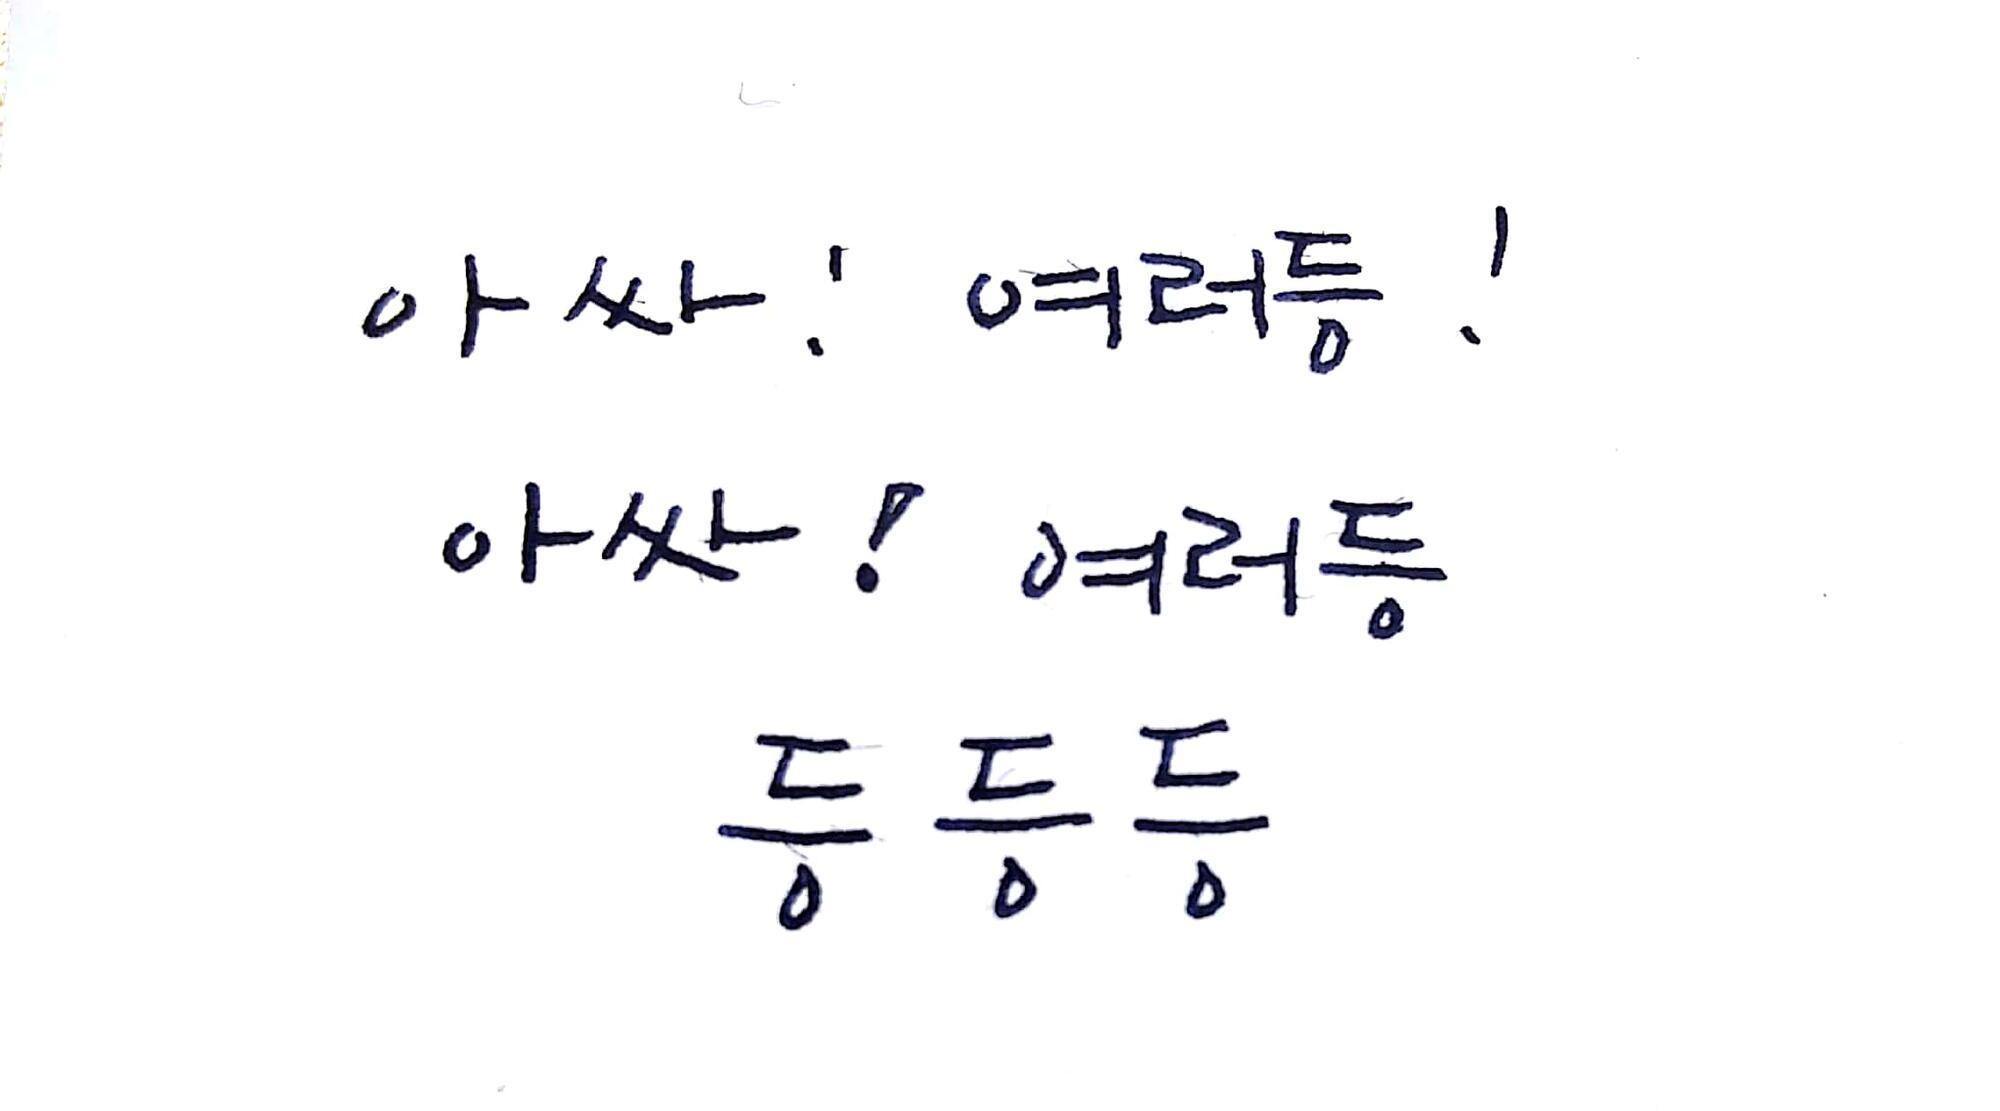 아싸! 여러등!
아싸! 여러등
등 등 등